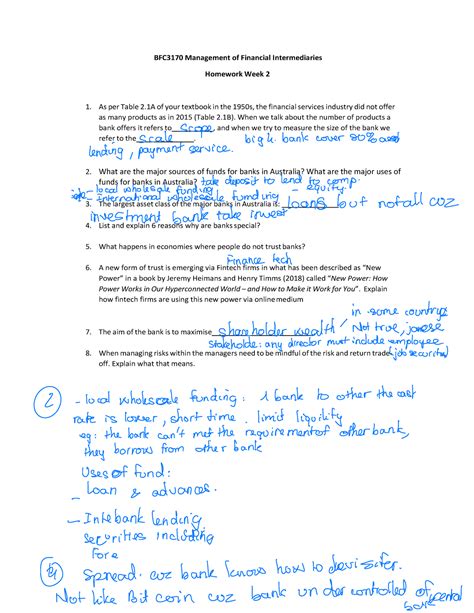 BFC3170 Management of Financial Intermediaries
Homework Week 2
1. As per Table 2.1A of your textbook in the 1950s, the financial services industry did not offer
as many products as in 2015 (Table 2.1B). When we talk about the number of products a
bank offers it refers to Scope, and when we try to measure the size of the bank we
refer to the Scale. big 4. bank cover 80% based
lending, payment service.
2. What are the major sources of funds for banks in Australia? What are the major uses of
funds for banks in Australia? take deposit to lend to comp.
- local wholesale funding - equity.
- International wholesale funding
3. The largest asset class of the major banks in Australia is: loans but not all coz
investment bank take invest
4. List and explain 6 reasons why are banks special?
5. What happens in economies where people do not trust banks?
Finance tech
6. A new form of trust is emerging via Fintech firms in what has been described as “New
Power” in a book by Jeremy Heimans and Henry Timms (2018) called “New Power: How
Power Works in Our Hyperconnected World – and How to Make it Work for You”. Explain
how fintech firms are using this new power via online medium
in some country
7. The aim of the bank is to maximise shareholder wealth / Not true,
stakeholde: any director must include employee
8. When managing risks within the managers need to be mindful of the risk and return trade- (job securities)
off. Explain what that means.
2 - local wholesale funding: 1 bank to other the cost
rate is lower, short time. limit liquility
eg: the bank can't met the requirement of other bank,
they borrow from other bank
Uses of fund:
- Loan & advances.
- Intebank lending
securities including
Fore
Spread. coz bank know how to
Not like Bit coin coz bank under controlled of